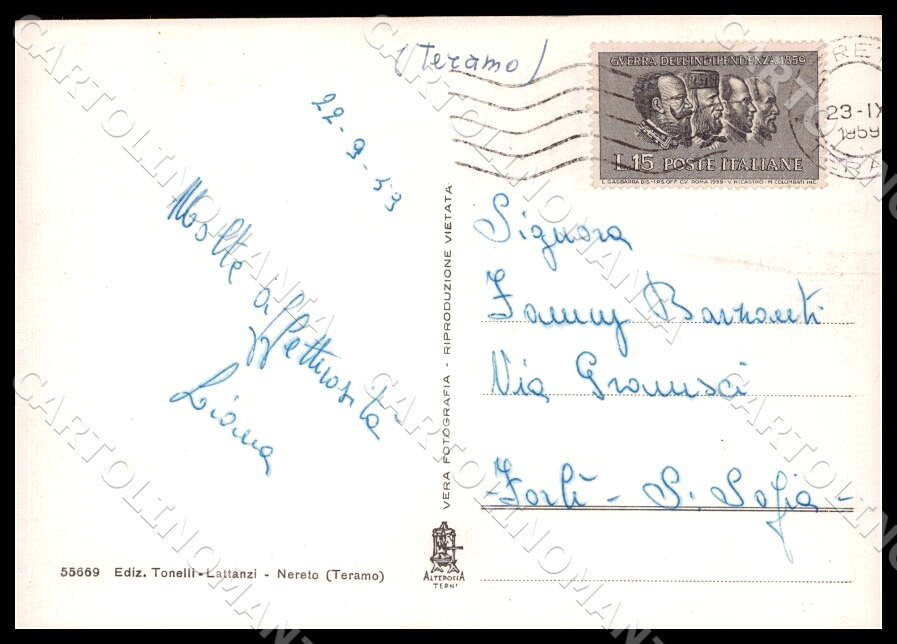 (Teramo)
22-9-59
Molte
affettuosità
Liana
55669 Ediz. Tonelli-Lattanzi - Nereto (Teramo)
VERA FOTOGRAFIA - RIPRODUZIONE VIETATA
ALTEROCCA
TERNI
GVERRA DELL'INDIPENDENZA 1859
L.15 POSTE ITALIANE
23-IX
1959
Signora
Fanny Barzanti
Via Gramsci
-Forlì - S. Sofia-
CARTOLINOMANIA